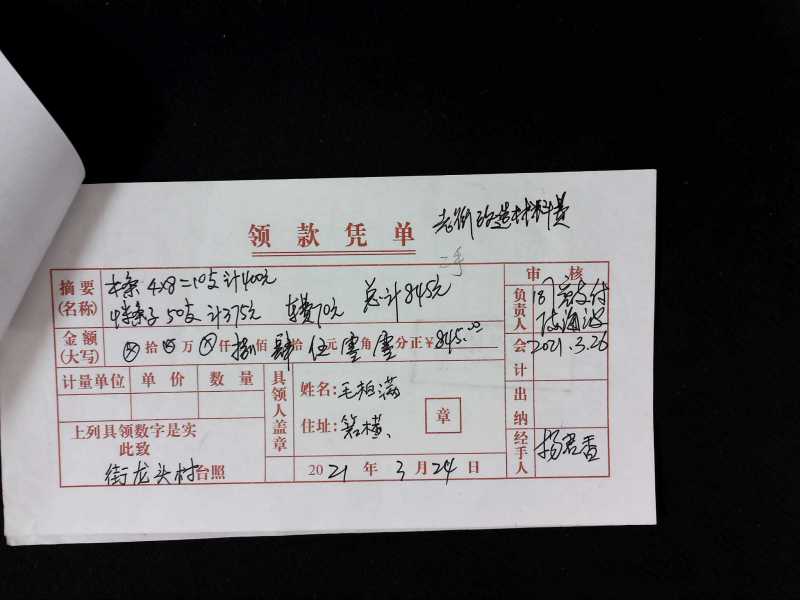 领款凭单 老街改造材料费
二手
摘要(名称) 木条 4×8=10支计400元
50支 计375元 车费70元 总计845元
审核
负责人 同意支付
2021.3.26
金额(大写) ⊗拾⊗万⊗仟捌佰肆拾伍元零角零分正¥845.00
会计
计量单位 单价 数量
具领人盖章
姓名:毛柏满
住址:箬横、
章
出纳
上列具领数字是实
此致
街龙头村台照
2021年3月24日
经手人 杨君香